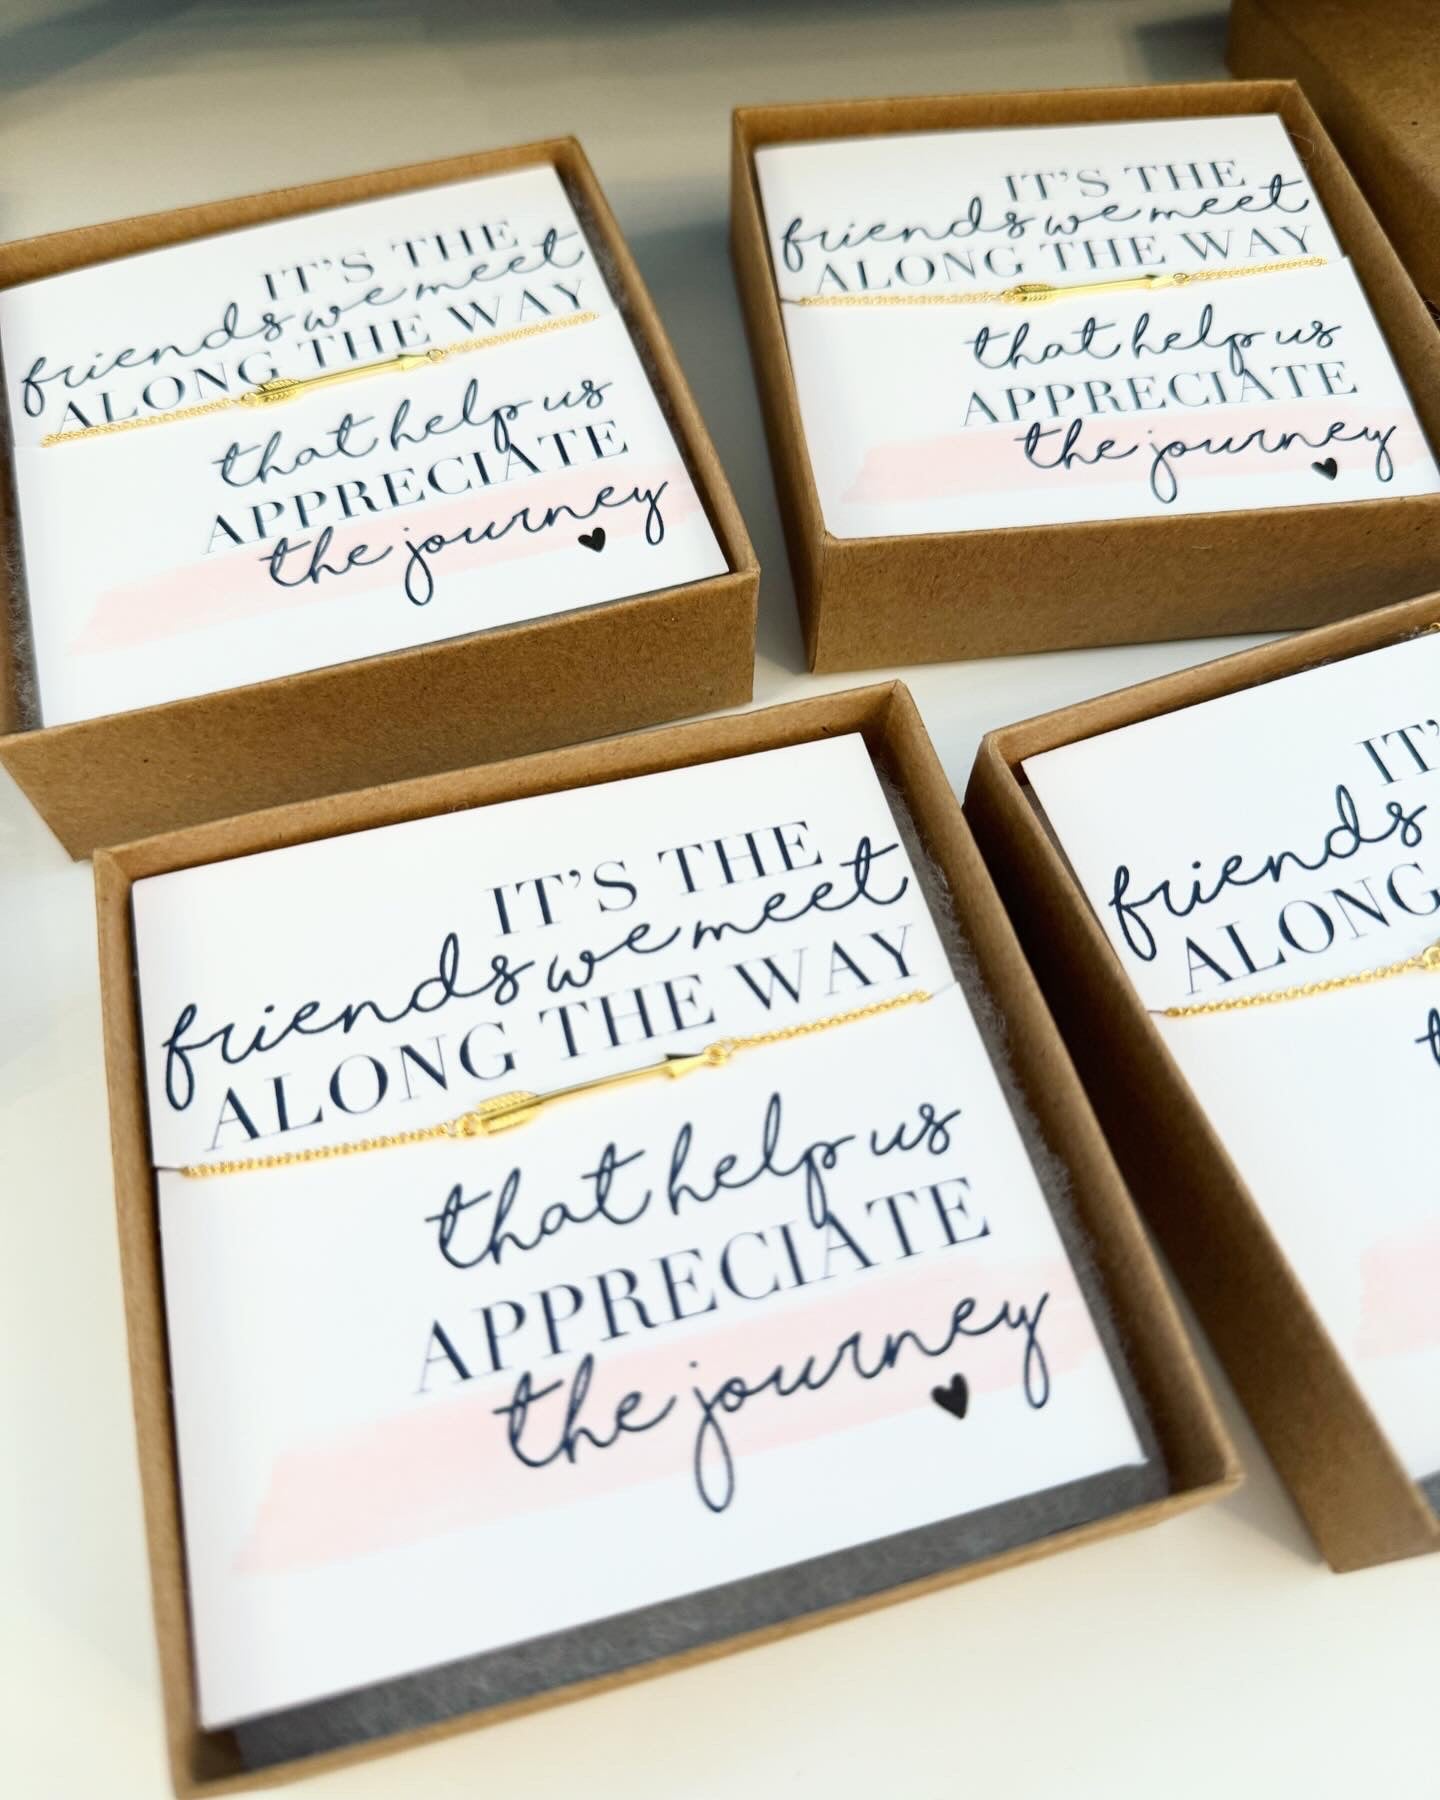 IT'S THE
friends we meet
ALONG THE WAY
that help us
APPRECIATE
the journey
IT'S THE
friends we meet
ALONG THE WAY
that help us
APPRECIATE
the journey
IT'S THE
friends we meet
ALONG THE WAY
that help us
APPRECIATE
the journey
IT'
friends
ALONG
t